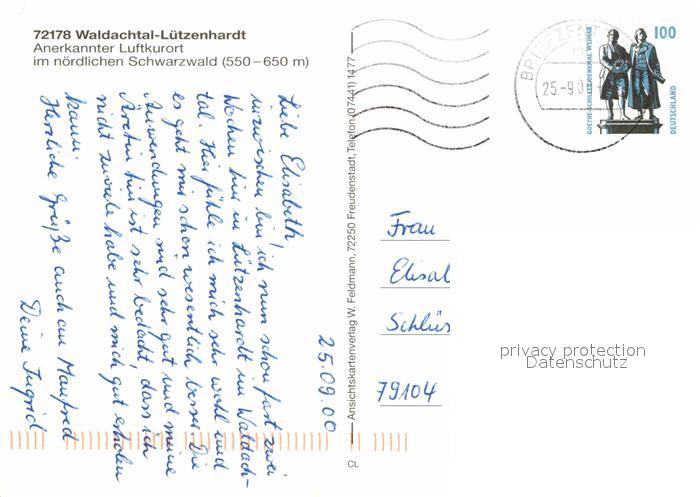 72178 Waldachtal-Lützenhardt
Anerkannter Luftkurort
im nördlichen Schwarzwald (550–650 m)
25.09.00
Liebe Elisabeth!
inzwischen bin ich nun schon fast zwei
Wochen hier in Lützenhardt im Waldach-
tal. Hier fühle ich mich sehr wohl und
es geht mir schon wesentlich besser. Die
Anwendungen sind sehr gut und meine
Ärztin hier ist sehr bedacht, dass ich
nicht zuviele habe und mich gut erholen
kann.
Herzliche Grüße auch an Manfred
Deine Ingrid
Ansichtskartenverlag W. Feldmann, 72250 Freudenstadt, Telefon (07441) 1477
CL
BRIEFZENT
25.-9.0
GOETHE-SCHILLER-DENKMAL WEIMAR
100
DEUTSCHLAND
Frau
Elisa
Schlüs
79104
privacy protection
Datenschutz